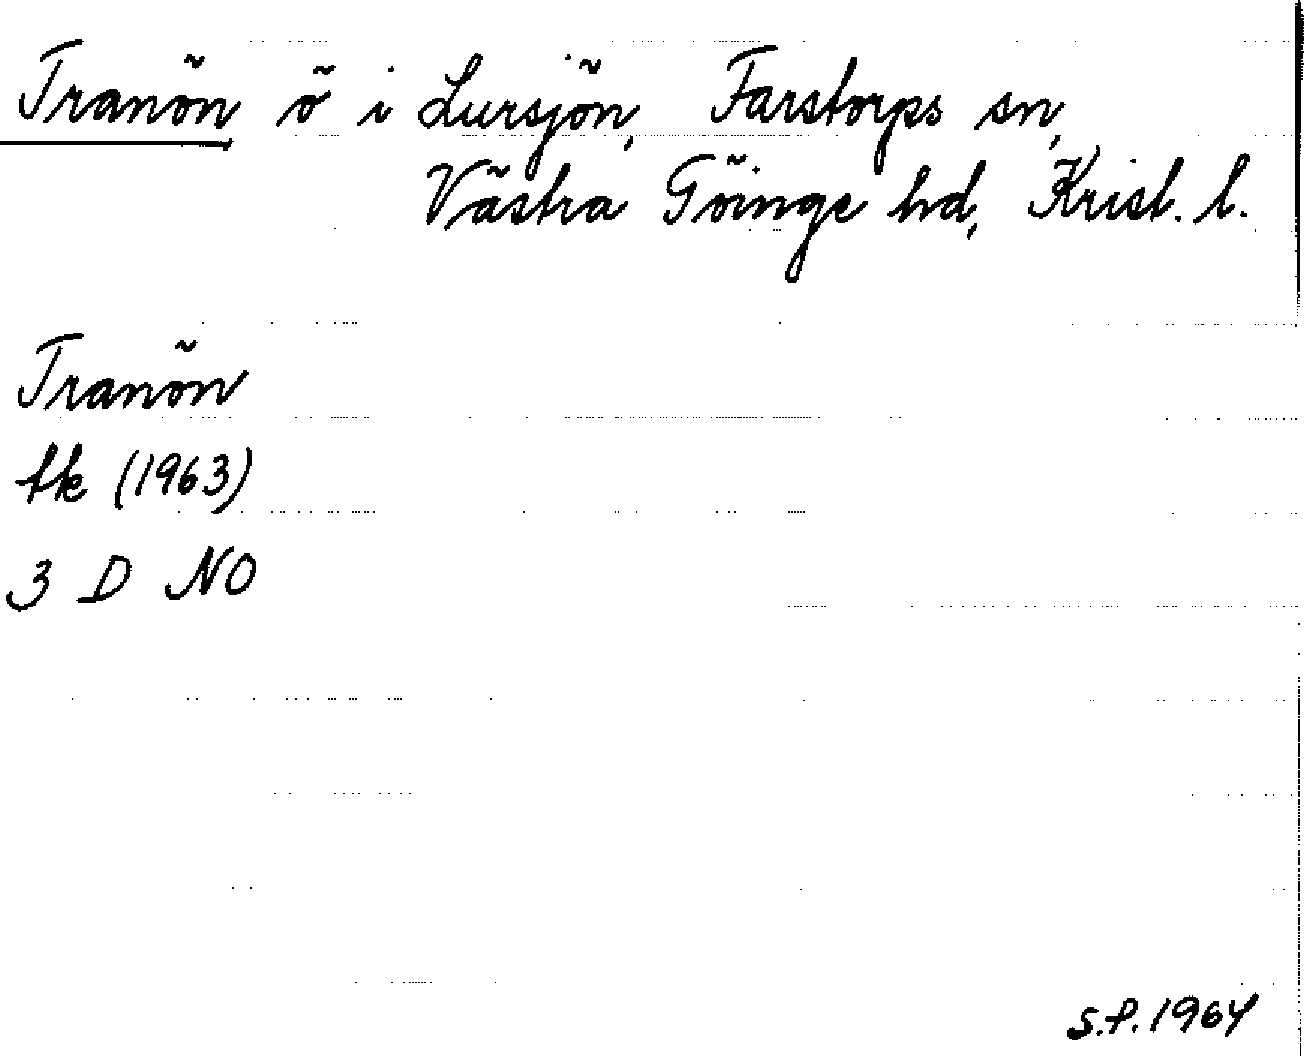 Tranön, ö i Lursjön, Farstorps sn,
Västra Göinge hd, Krist. l.
Tranön
tk (1963)
3 D NO
S.P. 1964